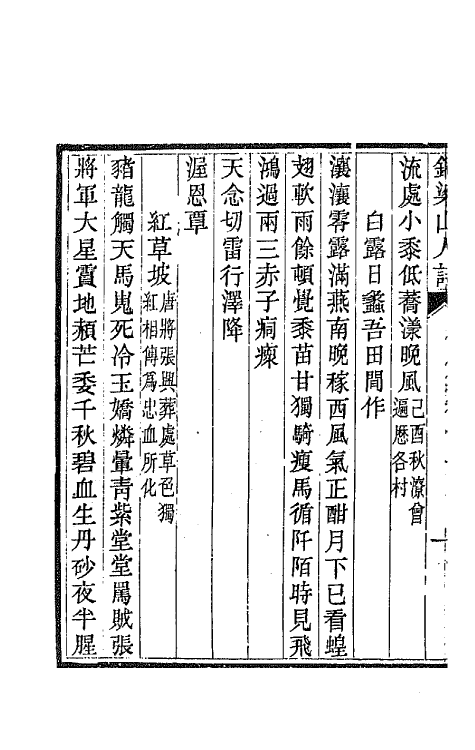 銅梁山人詩
流處小黍低蕎漾晚風己酉秋潦曾
遍歷各村
白露日蠡吾田間作
瀼瀼零露滿燕南晚稼西風氣正酣月下已看蝗
翅軟雨餘頓覺黍苗甘獨騎瘦馬循阡陌時見飛
鴻過兩三赤子痌瘝
天念切雷行澤降
渥恩覃
紅草坡唐將張興葬處草色獨
紅相傳爲忠血所化
豬龍觸天馬嵬死冷玉嬌燐暈青紫堂堂罵賊張
將軍大星霣地頳芒委千秋碧血生丹砂夜半腥